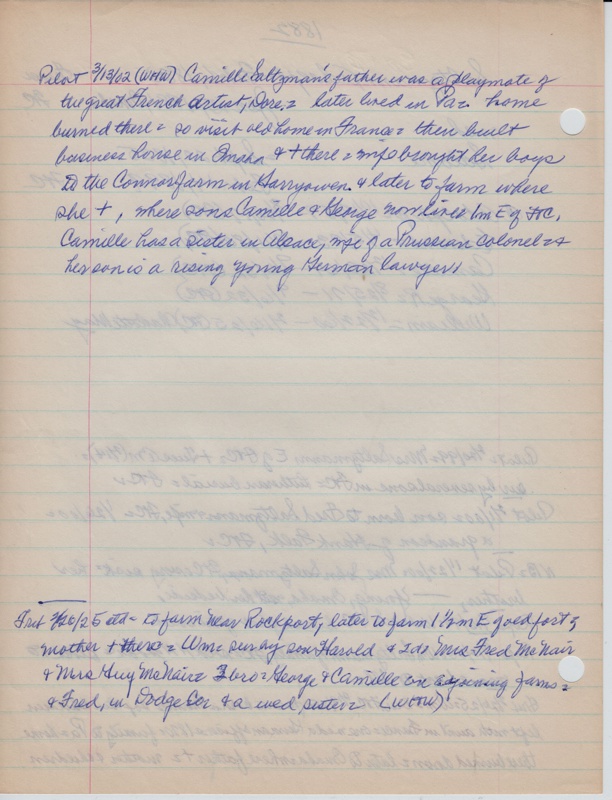 Pilot 3/13/02 (WHW) Camille Saltzman's father was a playmate of
the great French Artist, Dore = later lived in Pa = home
burned there = so visit old home in France = then built
business house in Omaha & + there = wife brought her boys
to the Connor farm in Harryowen & later to farm where
she +, where sons Camille & George now live 1m E of FtC,
Camille has a sister in Alsace, wife of a Prussian Colonel = &
her son is a rising young German lawyer
3/20/25 = to farm near Rockport, later to farm 1½ m E of
mother + there = Wm = surv by son Harold & 2 ds Mrs Fred McNair
& Mrs Guy McNair = 3 bro = George & Camille on adjoining farms =
& Fred, in Dodge Co & a wed sister = (WHW)